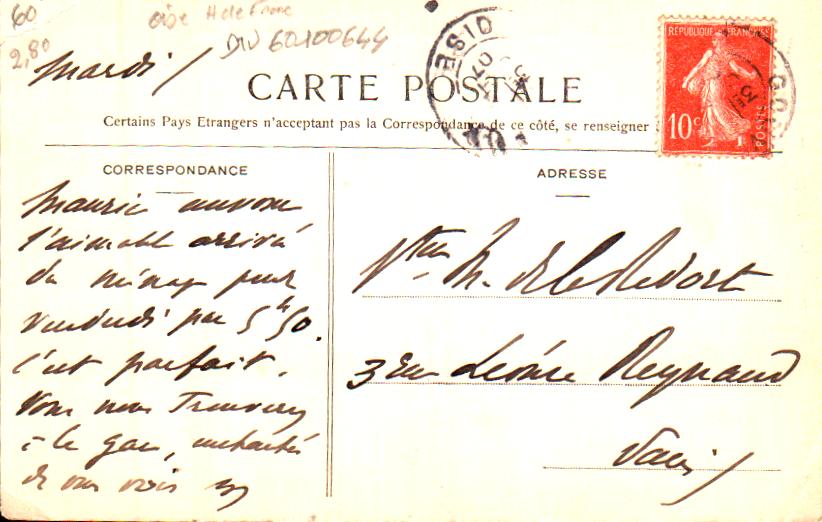 60
2,80
oise H de France
DIV 60100644
Mardi
CARTE POSTALE
Certains Pays Etrangers n'acceptant pas la Correspondance de ce côté, se renseigner
REPUBLIQUE FRANÇAISE
10c
POSTES
OISE
CORRESPONDANCE
Maurice annonce
l'aimable arrivée
du ménage pour
vendredi par 5h50.
C'est parfait.
Vous nous trouverez
à la gare, enchantés
de vous voir
ADRESSE
Vtesse H. de le Redorte
3 rue Léonce Reynaud
Paris